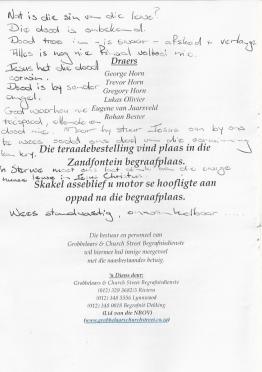 Wat is die sin van die lewe?
Die dood is onbekend.
Dood tree in - is swaar - afskeid + verlange
Alles is nog nie
nie.
Jesus het die dood
oorwin.
Dood is by sonder
angel.
God waarhou nie
teespoed, ellende en
dood nie. Maar hy stuur Jesus om by ons
te wees sodat ons deel van die oorwinning
kan kry.
Draers
George Horn
Trevor Horn
Gregory Horn
Lukas Olivier
Eugene van Jaarsveld
Rohan Bester
Die teraadebestelling vind plaas in die
Zandfontein begraafplaas.
In Sterwe moet ons vas
aan die ewige
lewe in Jesus Christus.
Skakel asseblief u motor se hoofligte aan
oppad na die begraafplaas.
Wees standvastig, onwankelbaar .....
Die bestuur en personeel van
Grobbelaars & Church Street Begrafnisdienste
wil hiermee hul innige meegevoel
met die naasbestaandes betuig.
'n Diens deur:
Grobbelaars & Church Street Begrafnisdienste
(012) 329 3682/5 Riviera
(012) 348 3556 Lynnwood
(012) 348 0818 Begrafnis Dekking
(Lid van die NBOV)
(www.grobbelaarschurchstreet.co.za)